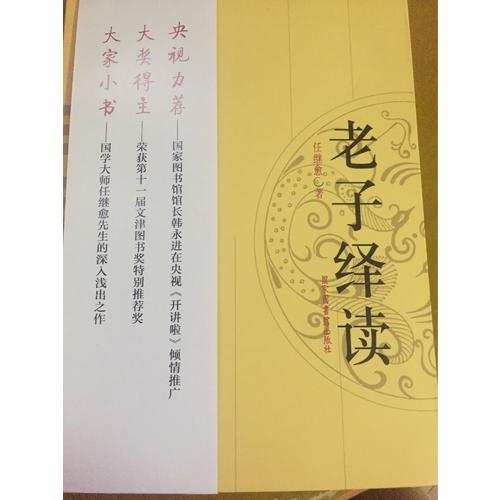 老子绎读
任继愈 著
国家图书馆出版社
央视力荐——国家图书馆馆长韩永进在央视《开讲啦》倾情推广
大奖得主——荣获第十一届文津图书奖特别推荐奖
大家小书——国学大师任继愈先生的深入浅出之作